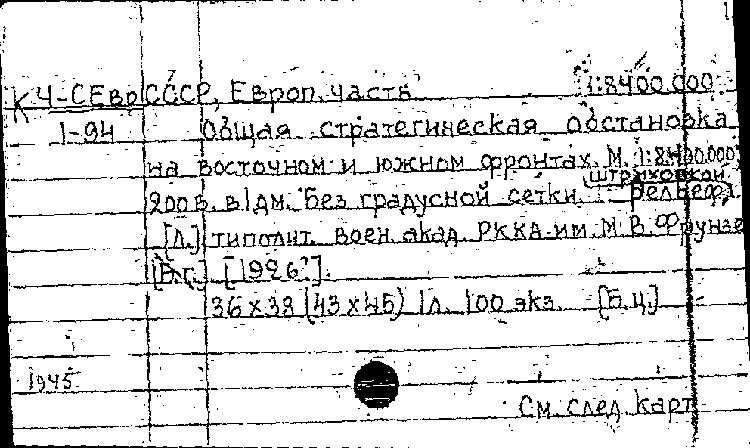 К Ч-СЕвр СССР, Европ. часть 1:8400.000
1-94 Общая стратегическая обстановка
на восточном и южном фронтах. М. 1:8400.000,
штриховкой,
200в. в 1 дм. Без градусной сетки. Рельеф
[Л.] типолит. воен. акад. РККА им. М. В. Фрунзе
[Б.г.] [1926?].
36 х 38 (43 х 45) 1 л. 100 экз. [Б.ц.]
1945
См. след. карт